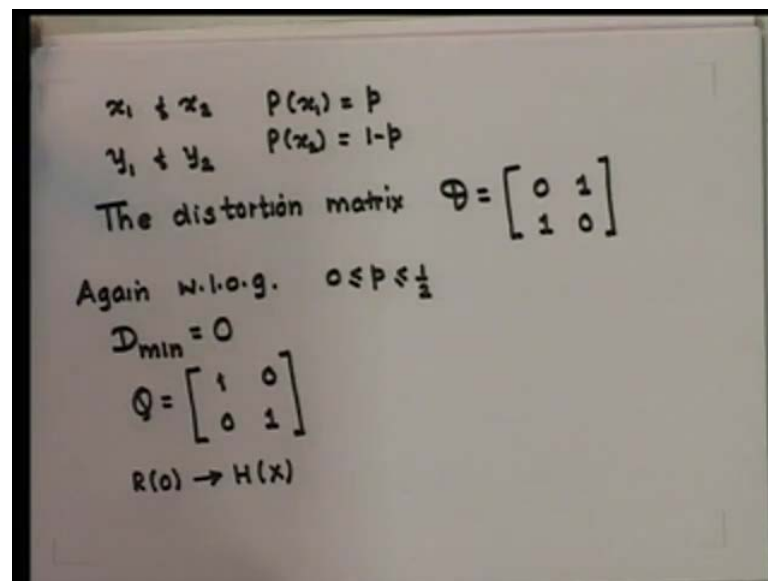 x₁ & x₂ P(x₁) = p
y₁ & y₂ P(x₂) = 1-p
The distortion matrix 𝔇 = [0 1; 1 0]
Again w.l.o.g. 0 ≤ p ≤ 1/2
Dmin = 0
Q = [1 0; 0 1]
R(0) → H(X)